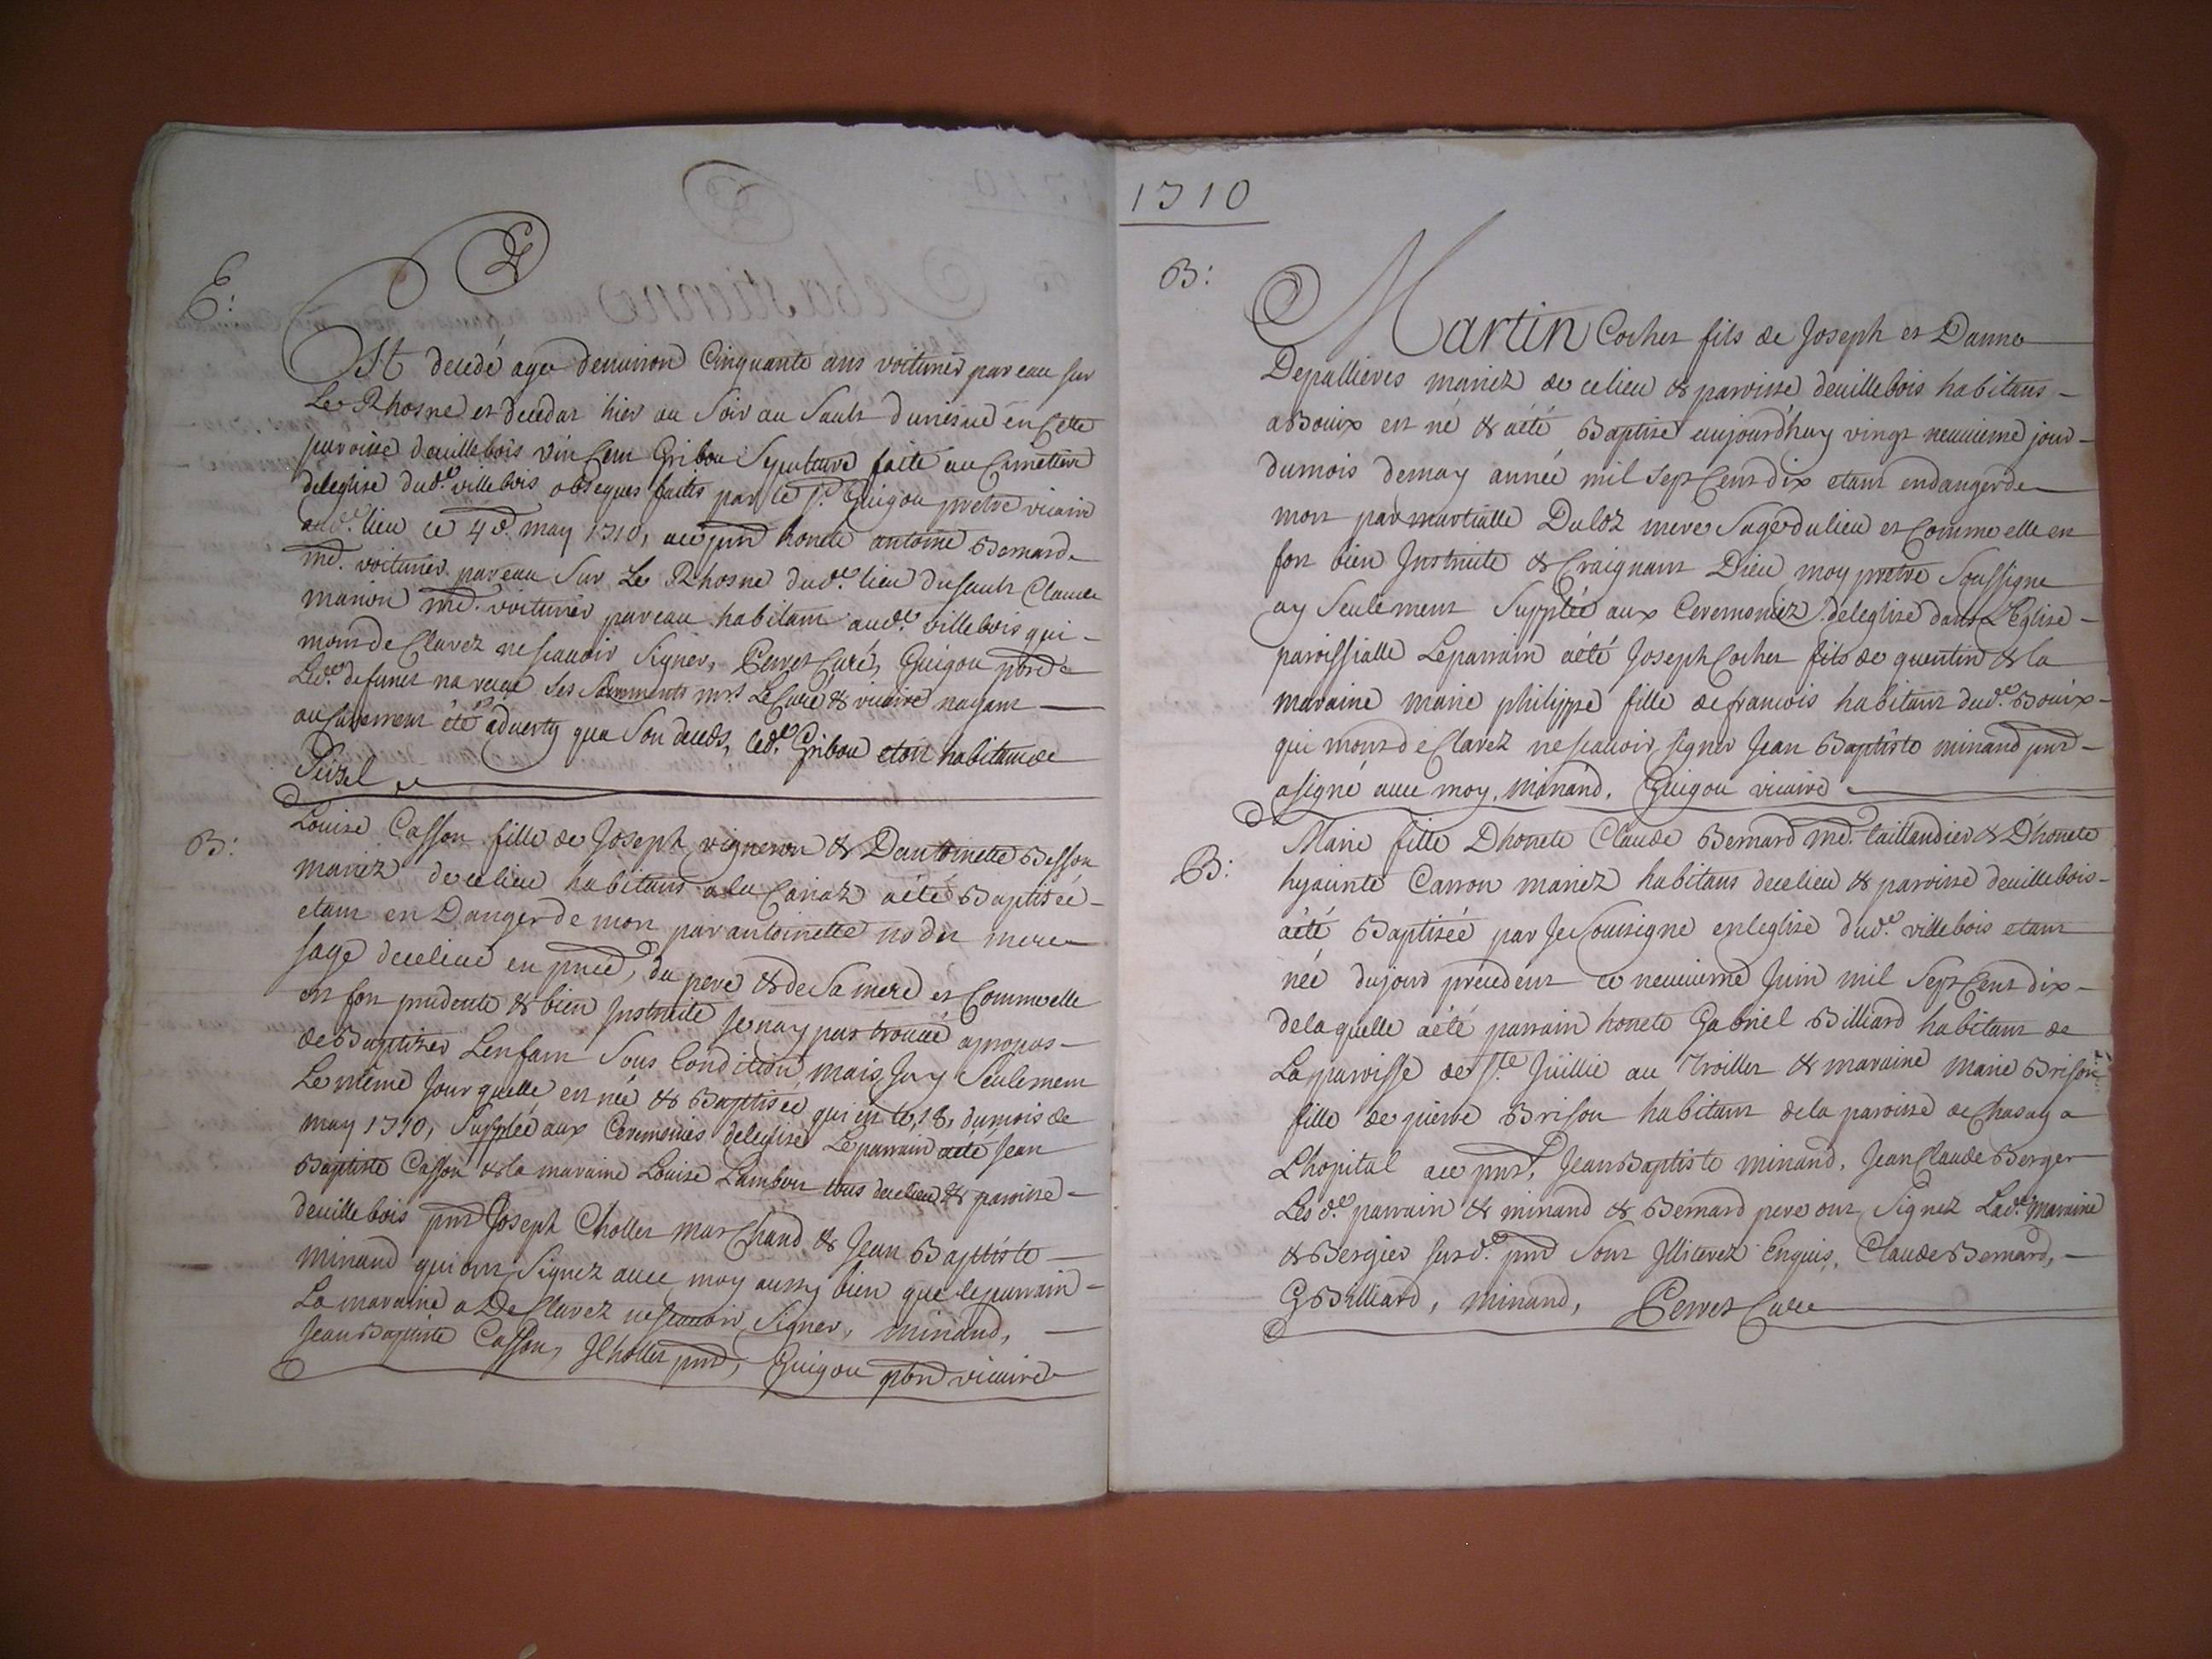 E:
Est decedé agé denuiron Cinquante ans voiturier par eau sur
Le Rhosne et decedat hier au Soir au Sault en Cette
paroisse deuillebois Vincent Gribou Sepulture faite au Cimettiere
deleglise dud.e villebois obseques faites par le Sr. Guigou pretre vicaire
aud.e lieu ce 4e. may 1710, aud prnt honete antoine Bernard
md. voiturier par eau Sur Le Rhosne dud.e lieu dusault Claude
marion md. voiturier pareau habitant aud.e villebois qui
monsde Clarez nescauoir Signer, Perret Curé, Guigou pbre
Led.e defunct na receu Ses Sacrements mrs. Le Curé & vicaire nayant
aucunement été aduerty que Son deceds, led.e Gribou etoit habitant de
B:
Louise Casson fille de Joseph vigneron & Dantoinette Besson
mariez decelieu habitans ala Cariaz aété Baptisée
etant en Danger de mort par antoinette mere
sage decelieu en prnce, du pere & de Sa mere et Comme elle
est fort prudente & bien Instruite Je nay pas trouué apropos
de Baptiser Lenfant Sous Condition, mais Jay Seulement
Le même Jour quelle est née & Baptisée qui est le 18, dumois de
may 1710, Supplée aux Ceremonies deleglise Leparrain aété Jean
Baptiste Casson & la maraine Louise Lambert tous decelieu & paroisse
deuillebois prnt Joseph Chollet marchand & Jean Baptiste
minand qui ont Signez auec moy aussy bien que leparrain
La maraine a DeClarez nescauoir Signer, minand,
Jean Baptiste Casson, JChollet prnt, Guigou pbre vicaire
1710
B:
Martin Cochet fils de Joseph et Danne
Depallieres mariez de celieu & paroisse deuillebois habitans
aBouix est né & aété Baptisé aujourdhuy vingt neuuieme jour
dumois demay année mil Sept Cent dix etant endangerde
mort par martialle Duloz mere Sage dulieu et Comme elle est
fort bien Instruite & Craignant Dieu moy pretre Soussigne
ay Seulement Supplée aux Ceremoniez deleglise dans L'Eglise
paroissialle Leparrain aété Joseph Cochet fils de quentin & la
maraine marie philippe fille defrancois habitant dud.e Bouix
qui monsde Clarez nescauoir signer Jean Baptiste minand prnt
asigné auec moy, minand, Guigou vicaire
B:
Marie fille Dhonete Claude Bernard md. taillandier & Dhonete
hyacinte Carron mariez habitans decelieu & paroisse deuillebois
aété Baptisée par Je Soussigne enleglise dud.e villebois etant
née dujour precedent ce neuuieme Juin mil Sept Cent dix
delaquelle aété parrain honete Gabriel Billiard habitant de
Laparoisse de Ste. Jüillie au Troillet & maraine Marie Brison
fille de pierre Brison habitant dela paroisse de Chasay a
Lhopital aec prnt, Jean Baptiste minand, Jean Claude Berger
Lesd.e parrain & minand & Bernard pere ont Signez Lad.e maraine
& Bergier susd.e prnt Sont Illiterez Enquis, Claude Bernard,
GBilliard, minand, Perret Curé